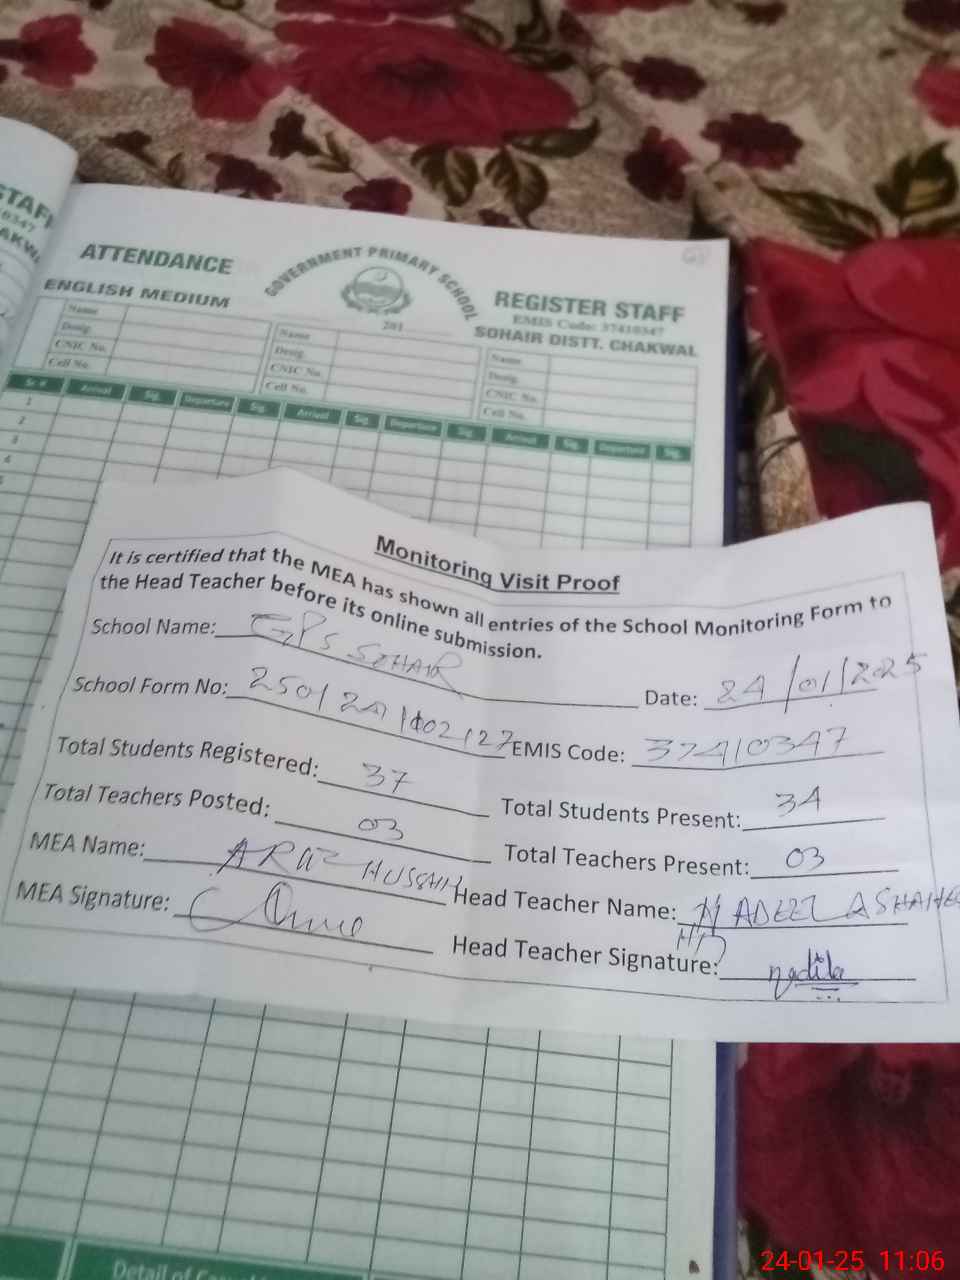 STAFF
ATTENDANCE
ENGLISH MEDIUM
GOVERNMENT PRIMARY SCHOOL
201
REGISTER STAFF
EMIS Code: 37410347
SOHAIR DISTT. CHAKWAL
Name Name Name
Desig. Desig. Desig.
CNIC No. CNIC No. CNIC No.
Cell No. Cell No. Cell No.
Sr. # Arrival Sig. Departure Sig. Arrival Sig. Departure Sig. Arrival Sig. Departure Sig.
1
2
3
4
5
Monitoring Visit Proof
It is certified that the MEA has shown all entries of the School Monitoring Form to
the Head Teacher before its online submission.
School Name: GPS SOHAIR
Date: 24/01/2025
School Form No:
EMIS Code: 37410347
Total Students Registered: 37
Total Students Present: 34
Total Teachers Posted: 03
Total Teachers Present: 03
MEA Name: HUSSAIN
Head Teacher Name:
MEA Signature:
Head Teacher Signature: nadila
Detail of
24-01-25 11:06